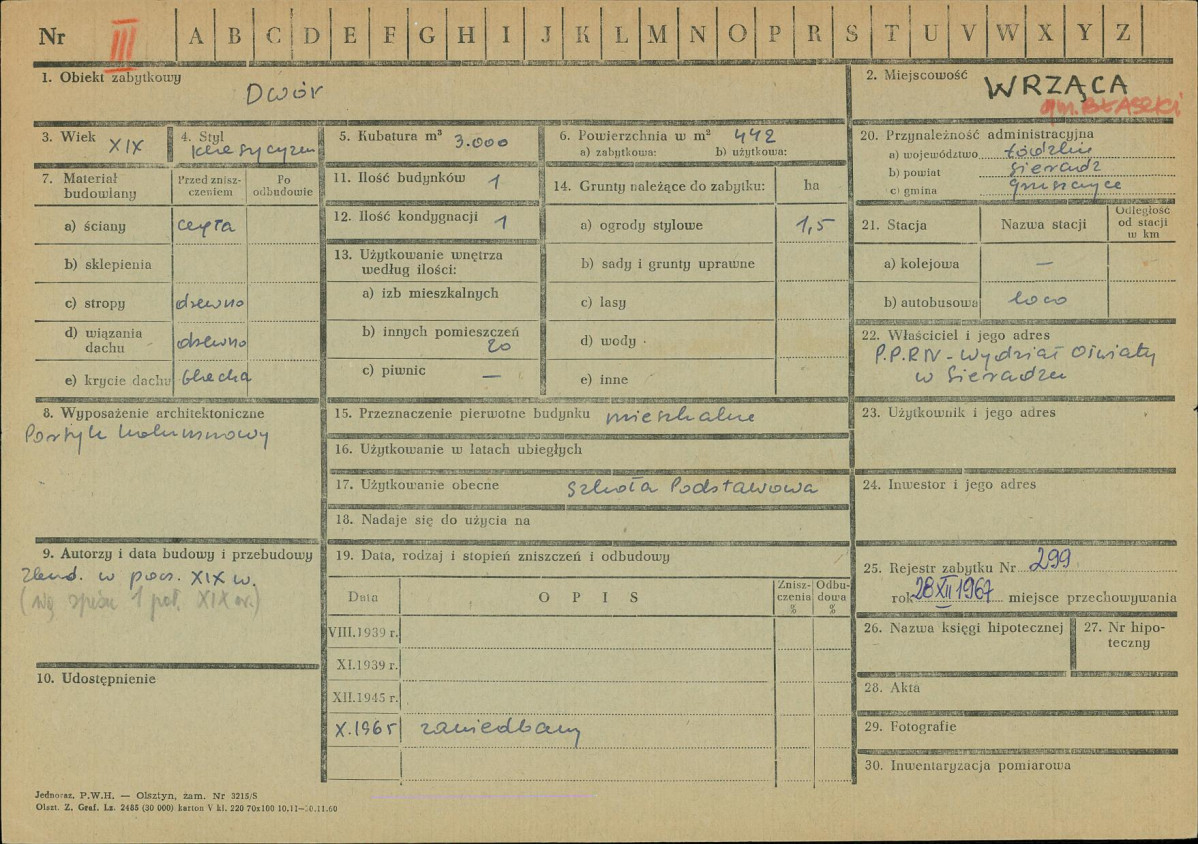 Nr III A B C D E F G H I J K L M N O P R S T U V W X Y Z
1. Obiekt zabytkowy
Dwór
2. Miejscowość WRZĄCA
gm. BŁASZKI
3. Wiek XIX
4. Styl
klasycyzm
5. Kubatura m³ 3.000
6. Powierzchnia w m² 442
a) zabytkowa: b) użytkowa:
7. Materiał budowlany
Przed znisz-
czeniem
Po
odbudowie
a) ściany cegła
b) sklepienia
c) stropy drewno
d) wiązania
dachu drewno
e) krycie dachu blacha
8. Wyposażenie architektoniczne
Portyk kolumnowy
9. Autorzy i data budowy i przebudowy
zbud. w pocz. XIX w.
(wg spisu 1 poł. XIX w.)
10. Udostępnienie
11. Ilość budynków 1
12. Ilość kondygnacji 1
13. Użytkowanie wnętrza
według ilości:
a) izb mieszkalnych
b) innych pomieszczeń
20
c) piwnic —
14. Grunty należące do zabytku: ha
a) ogrody stylowe 1,5
b) sady i grunty uprawne
c) lasy
d) wody
e) inne
15. Przeznaczenie pierwotne budynku mieszkalne
16. Użytkowanie w latach ubiegłych
17. Użytkowanie obecne Szkoła Podstawowa
18. Nadaje się do użycia na
19. Data, rodzaj i stopień zniszczeń i odbudowy
Data
O P I S
Znisz-
czenia
%
Odbu-
dowa
%
VIII.1939 r.
XI.1939 r.
XII.1945 r.
X.1965 zaniedbany
20. Przynależność administracyjna
a) województwo łódzkie
b) powiat Sieradz
c) gmina Gruszczyce
21. Stacja
Nazwa stacji
Odległość
od stacji
w km
a) kolejowa —
b) autobusowa loco
22. Właściciel i jego adres
P.P.R.N - Wydział Oświaty
w Sieradzu
23. Użytkownik i jego adres
24. Inwestor i jego adres
25. Rejestr zabytku Nr 299
rok 28 XII 1967 miejsce przechowywania
26. Nazwa księgi hipotecznej
27. Nr hipo-
teczny
28. Akta
29. Fotografie
30. Inwentaryzacja pomiarowa
Jednoraz. P.W.H. — Olsztyn, zam. Nr 3215/S
Olszt. Z. Graf. Lz. 2485 (30 000) karton V kl. 220 70x100 10.11—30.11.60